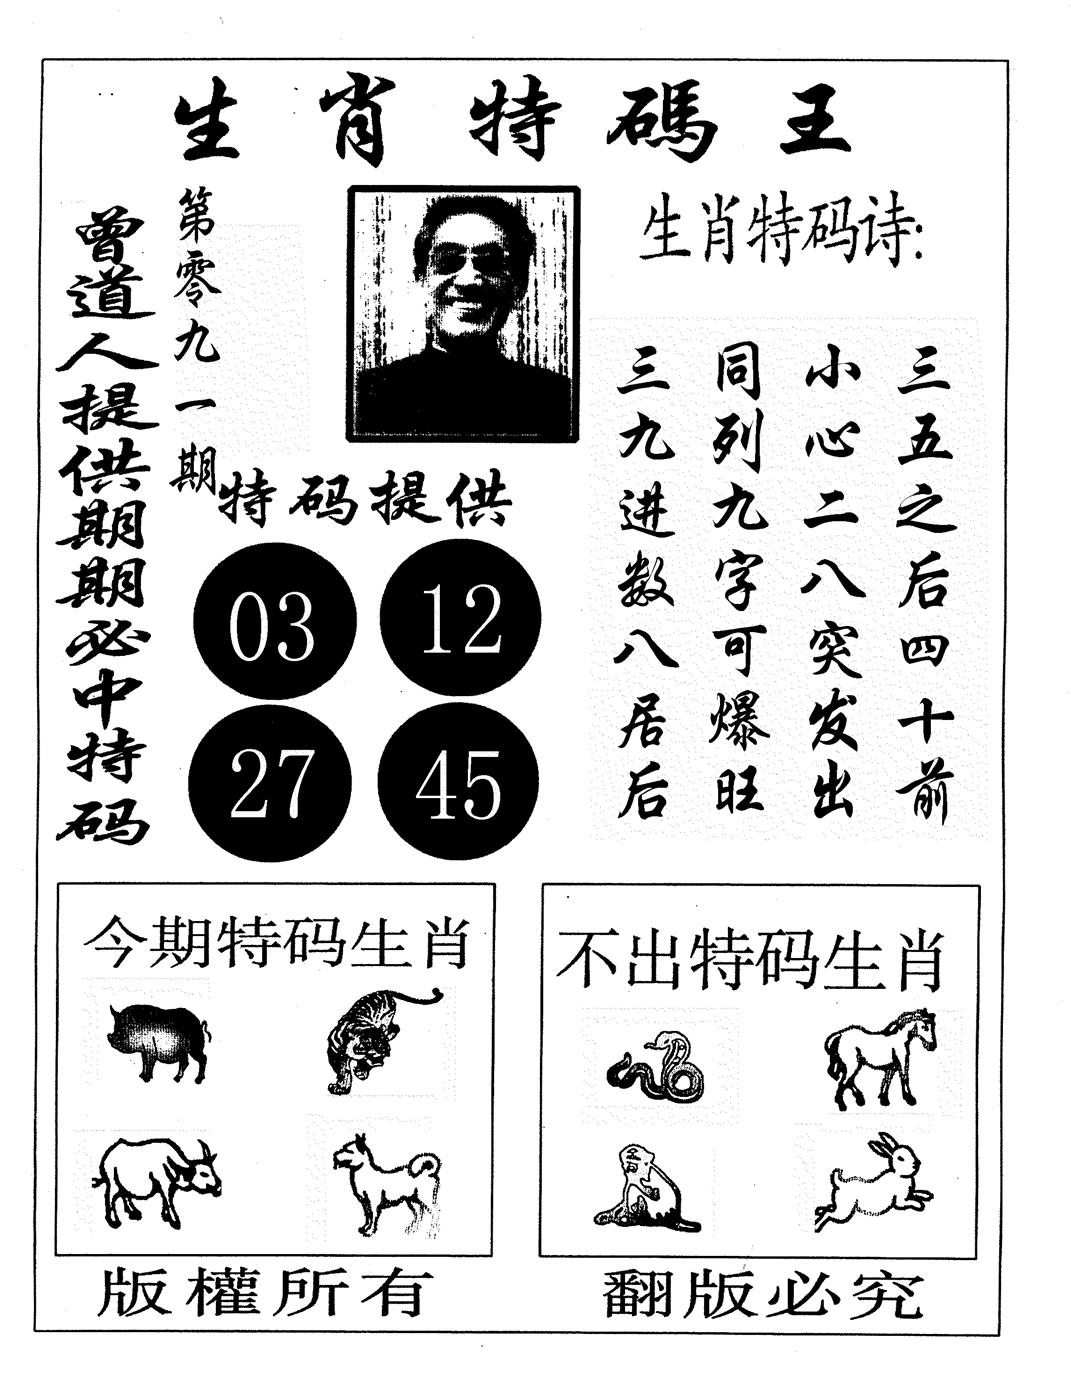 生肖特碼王
曾道人提供期期必中特码
第零九一期
生肖特码诗:
三五之后四十前
小心二八突发出
同列九字可爆旺
三九进数八居后
特码提供
03 12
27 45
今期特码生肖
不出特码生肖
版權所有
翻版必究